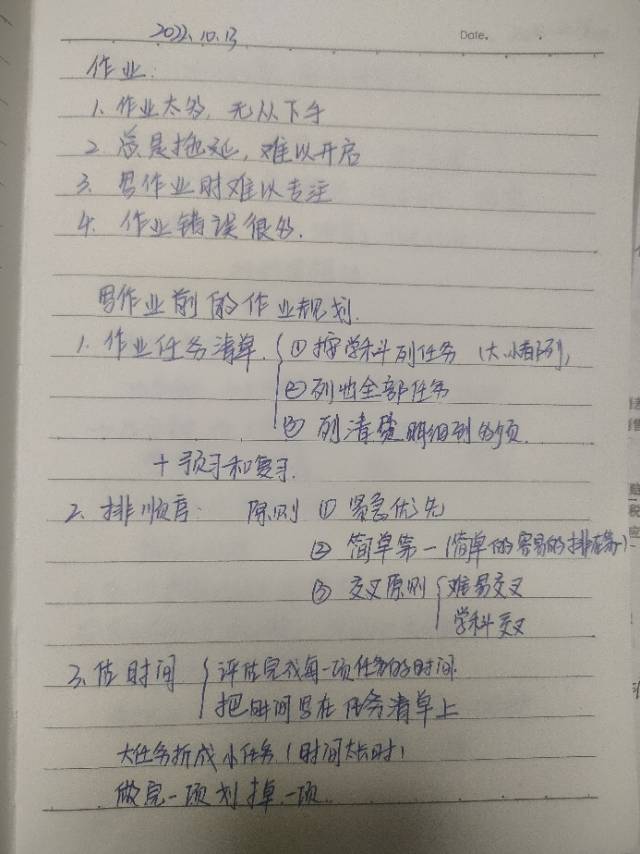 2022.10.13
Date.
作业:
1. 作业太多, 无从下手
2. 总是拖延, 难以开启
3. 写作业时难以专注
4. 作业错误很多.
写作业前的作业规划.
1. 作业任务清单. ① 按学科列任务 (大小都列)
② 列出全部任务
③ 列清楚 明细到多项.
+ 预习和复习.
2. 排顺序: 原则 ① 紧急优先
② 简单第一 (简单的容易的排在第一).
③ 交叉原则 难易交叉
学科交叉
3. 估时间 评估完成每一项任务的时间.
把时间写在任务清单上
大任务拆成小任务 (时间太长时)
做完一项划掉一项.